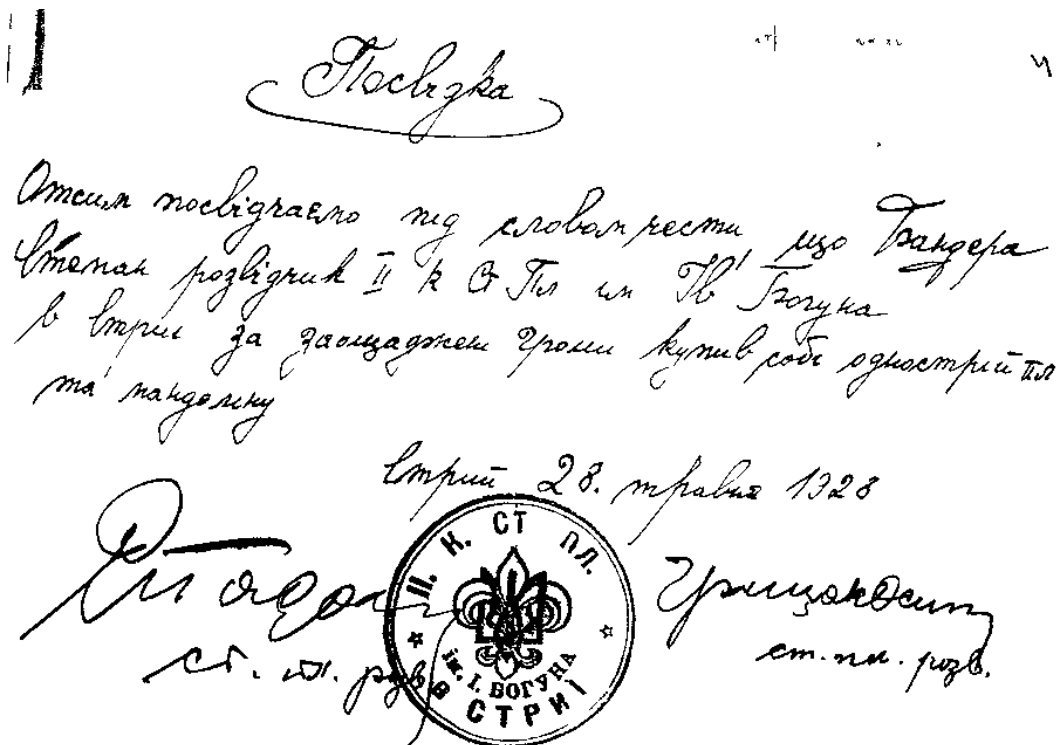 Посвідка
Отсим посвідчаємо під словом чести, що Бандера
Степан розвідчик II к Ст Пл ім Ів Богуна
в Стрию за заощаджені гроши купив собі однострій пл
та мандоліну
Стрий 28. травня 1928
Грицак Осип
ст. пл. розв.
ст. пл. розв
II. К. СТ ПЛ.
ім. І. БОГУНА
В СТРИЮ